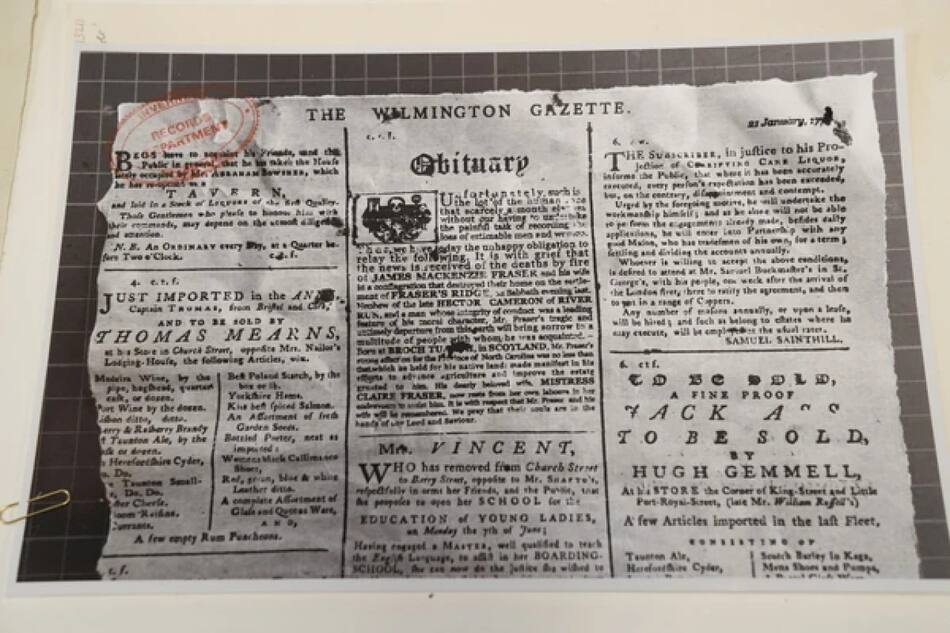 THE WILMINGTON GAZETTE.
21 January, 177
INVERN
RECORDS
DEPARTMENT
BEGS leave to acquaint his Friends, and the
Public in general, that he has taken the House
lately occupied by Mr. ABRAHAM BOWSHER, which
he has re-opened as a
TAVERN,
and laid in a Stock of LIQUORS of the first Quality.
Those Gentlemen who please to honour him with
their commands, may depend on the utmost diligence
and attention.
N. B. An ORDINARY every Day, at a Quarter be-
fore Two o'Clock.
4. c. t. f.
JUST IMPORTED in the
Captain THOMAS, from Bristol and Cork,
AND TO BE SOLD BY
THOMAS MEARNS,
at his Store in Church Street, opposite Mrs. Nailor's
Lodging-House, the following Articles, viz.
Madeira Wine, by the
pipe, hogshead, quarter
cask, or dozen.
Port Wine by the dozen.
Lisbon ditto, ditto.
Cherry & Rasberry Brandy
Taunton Ale, by the
cask or dozen.
Herefordshire Cyder,
Do.
Taunton Small-
Do. Do.
Cheese.
Bloom Raisins.
Currants.
Best Poland Starch, by the
box or lb.
Yorkshire Hams.
Kits best spiced Salmon.
An Assortment of fresh
Garden Seeds.
Bottled Porter, neat as
imported;
Womens black Callimanco
Shoes,
Red, green, blue & white
Leather ditto.
A complete Assortment of
Glass and Queens Ware,
AND,
A few empty Rum Puncheons.
c. f.
c. t. f.
Obituary
Unfortunately, such is
the lot of the human race
that scarcely a month elapses
without our having to undertake
the painful task of recording the
loss of estimable men and women.
Thus, we have today the unhappy obligation to
relay the following. It is with grief that
the news is received of the deaths by fire
of JAMES MACKENZIE FRASER and his wife
in a conflagration that destroyed their home on the settle-
ment of FRASER'S RIDGE, on Sabbath evening last.
Nephew of the late HECTOR CAMERON of RIVER
RUN, and a man whose integrity of conduct was a leading
feature of his moral character, Mr. Fraser's tragic and
untimely departure from this earth will bring sorrow to a
multitude of people with whom he was acquainted.
Born at BROCH TUARACH, in SCOTLAND, Mr. Fraser's
strong affect on the Province of North Carolina was no less than
that which he held for his native land; made manifest in his
efforts to advance agriculture and improve the estate
granted to him. His dearly beloved wife, MISTRESS
CLAIRE FRASER, now rests from her own labours in her
endeavours to assist him. It is with respect that Mr. Fraser and his
wife will be remembered. We pray that their souls are in the
hands of our Lord and Saviour.
Mrs. VINCENT,
WHO has removed from Church Street
to Barry Street, opposite to Mr. SHAFTO's,
respectfully informs her Friends, and the Public, that
she proposes to open her SCHOOL for the
EDUCATION of YOUNG LADIES,
on Monday the 7th of June;
Having engaged a MASTER, well qualified to teach
the English Language, to assist in her BOARDING-
SCHOOL, she can now do the justice she wished to
6.
THE SUBSCRIBER, in justice to his Pro-
jection of CLARIFYING CANE LIQUOR,
informs the Public, that where it has been accurately
executed, every person's expectation has been exceeded,
but, on the contrary, disappointment and contempt.
Urged by the foregoing motive, he will undertake the
workmanship himself; and as he alone will not be able
to perform the engagements already made, besides daily
applications, he will enter into Partnership with any
good Mason, who has tradesmen of his own, for a term;
settling and dividing the accounts annually.
Whoever is willing to accept the above conditions,
is desired to attend at Mr. Samuel Buckmaster's in St.
George's, with his people, one week after the arrival of
the London fleet; there to ratify the agreement, and then
to set in a range of Coppers.
Any number of masons annually, or upon a lease,
will be hired; and such as belong to estates where he
may execute, will be employed at the usual rates.
SAMUEL SAINTHILL.
6. ctf.
TO BE SOLD,
A FINE PROOF
JACK ASS
TO BE SOLD,
BY
HUGH GEMMELL,
At his STORE the Corner of King-Street and Little
Port-Royal-Street, (late Mr. William Russell's)
A few Articles imported in the last Fleet,
CONSISTING OF
Taunton Ale,
Herefordshire Cyder,
Scotch Barley in Kegs,
Mens Shoes and Pumps,